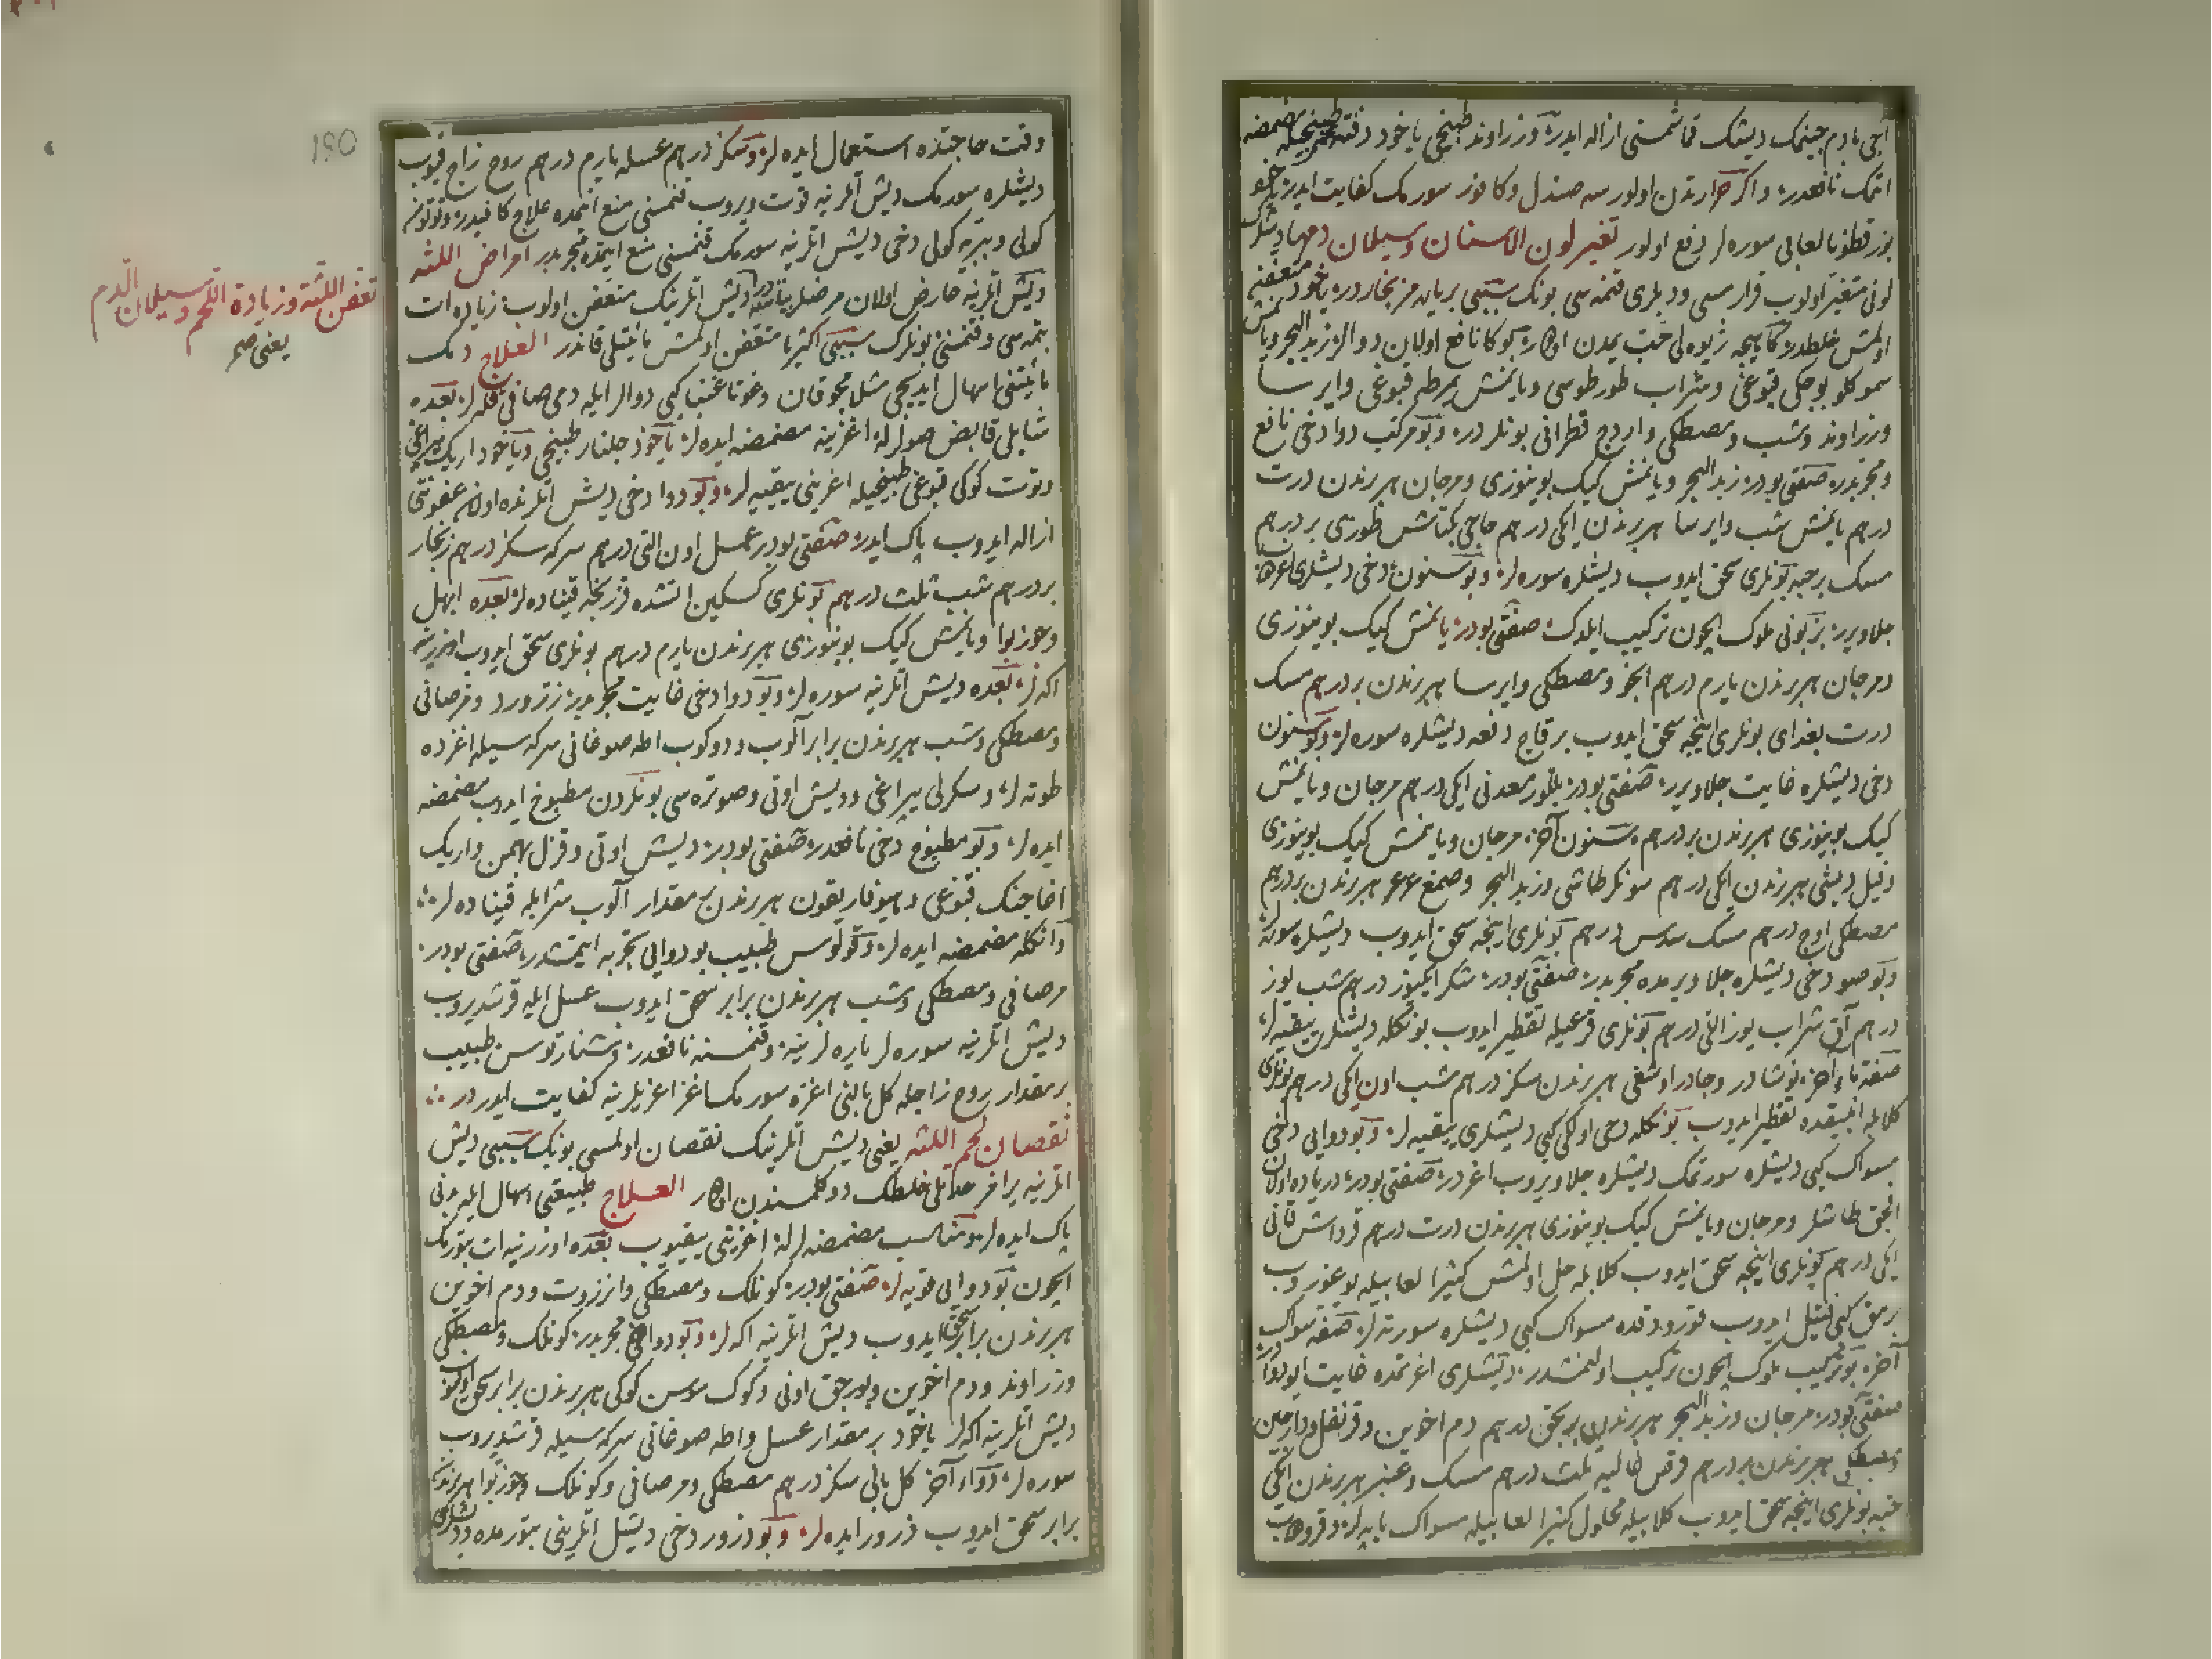 آجی بادم چینمك دیشك قماشمسنی ازاله ایدر وزراوند طبیخی یاخود دفنه طبیخیله مضمضه
اتمك نافعدر واكر حرارتدن اولورسه صندل وكافور سورمك كفایت ایدر یاخود
بزرقطونا لعابی سوره لر دفع اولور تغیر لون الاسنان وسیلان دمها دیشلرك
لونی متغیر اولوب قرارمسی ودیلری قنمه سی بونك سببی بریان مز بخاردر یاخود متعفن
اولمش خلطدر كاهیجه ژیوه لی حب یمدن اولور بوكا نافع اولان دوالر زبد البحر ویانمش
سموكلو بوجكی قبوغی وشراب طورطوسی ویانمش یمرطه قبوغی وایرسا
وزراوند وشب ومصطكی واردج قطرانی بونلردر وبو مركب دوا دخی نافع
ومجربدر صنعتی بودر زبد البحر ویانمش كیك بوینوزی ومرجان هر برندن درت
درهم یانمش شب وایرسا هر برندن ایكی درهم حاجی بكتاش طوزی بر درهم
مسك بر حبه بونلری سحق ایدوب دیشلره سوره لر وبو سنون دخی دیشلری اغردوب
جلا ویرر بز بونی ملوك ایچون تركیب ایلدك صنعتی بودر یانمش كیك بوینوزی
ومرجان هر برندن یارم درهم انجو ومصطكی وایرسا هر برندن بر درهم مسك
درت بغدای بونلری اینجه سحق ایدوب بر قاچ دفعه دیشلره سوره لر وبو سنون
دخی دیشلره غایت جلا ویرر صنعتی بودر بللور معدنی ایكی درهم مرجان ویانمش
كیك بوینوزی هر برندن بر درهم سنون آخر مرجان ویانمش كیك بوینوزی
وفیل دیشی هر برندن ایكی درهم سونكر طاشی وزبد البحر وصمغ عرعر هر برندن بر درهم
مصطكی اوچ درهم مسك سدس درهم بونلری اینجه سحق ایدوب دیشلره سورته لر
وبو صو دخی دیشلره جلا ویرمده مجربدر صنعتی بودر شكر ایكیوز درهم شب یوز
درهم آق شراب یوز اللی درهم بونلری قرعیله تقطیر ایدوب بونكله دیشلرین ییقیه لر
صفة ماء آخر نوشادر وجادر اوشغی هر برندن سكز درهم شب اون ایكی درهم بونلری
كلابله انبیقده تقطیر ایدوب بونكله دخی اولكی كبی دیشلری ییقیه لر وبو دوایی دخی
مسواك كبی دیشلره سورتمك دیشلره جلا ویروب اغردر صنعتی بودر دریاده اولان
الجق طاشلر ومرجان ویانمش كیك بوینوزی هر برندن درت درهم قرداش قانی
ایكی درهم بونلری اینجه سحق ایدوب كلابله حل اولمش كثیرا لعابیله یوغوروب
برمق كبی فتیل ایدوب قورودقده مسواك كبی دیشلره سورته لر صفه سواك
آخر بو تركیب ملوك ایچون تركیب اولنمشدر دیشلری اغرتمده غایت ایو دوادر
صنعتی بودر مرجان وزبد البحر هر برندن بر بچق درهم دم اخوین وقرنفل ودارچین
ومصطكی هر برندن بر درهم قرص غالیه ثلث درهم مسك وعنبر هر برندن ایكی
حبه بونلری اینجه سحق ایدوب كلابیله محلول كثیرا لعابیله مسواك یاپه لر وقرودوب
وقت حاجتده استعمال ایده لر وسكز درهم عسله یارم درهم روح زاج قیوب
دیشلره سورمك دیش اتلرینه قوت ویروب قنمسنی منع ایتمده علاج كافیدر وتوتون
كولی وبیریه كولی دخی دیش اتلرینه سورمك قنمسنی منع ایتمده مجربدر امراض اللثه
دیش اتلرینه عارض اولان مرضلر بیاننده در دیش اتلرینك متعفن اولوب زیاده ات
بتمه سی وقنمسنی بونلرك سببی اكثریا متعفن اولمش یا ینتلی قاندر العلاج دمك
ینتنی اسهال ایدیجی مثلا محوقان دخوتا غنبا كبی دوالر ایله دمی صافی قیله لر بعده
شابلی قابض صولرله اغزینه مضمضه ایده لر یاخود جلنار طبیخی ویاخود اریك یپراغی
وتوت كوكی قبوغی طبیخیله اغزینی ییقیه لر وبو دوا دخی دیش اتلرنده اولان عفونتی
ازاله ایدوب پاك ایدر صنعتی بودر عسل اون التی درهم سركه سكز درهم زنجار
بر درهم شب ثلث درهم بونلری كسكین اتشده قزرنجه قیناده لر بعده ابهل
وجوزبوا ویانمش كیك بوینوزی هر برندن یارم درهم بونلری سحق ایدوب اوزرینه
اكه لر بعده دیش اتلرینه سوره لر وبو دوا دخی غایت مجربدر زرورد ومرصافی
ومصطكی وشب هر برندن برابر آلوب ودوكوب اطه صوغانی سركه سیله اغزده
طوته لر وسكرلی یپراغی ودیش اوتی وصوتره سی بونلردن مطبوخ ایدوب مضمضه
ایده لر وبو مطبوخ دخی نافعدر صنعتی بودر دیش اوتی وقزل بهمن واریك
اغاجنك قبوغی وهیوفاریقون هر برندن بر مقدار آلوب شرابله قیناده لر
وانكله مضمضه ایده لر وقولوس طبیب بو دوایی تجربه ایتمشدر صنعتی بودر
مرصافی ومصطكی وشب هر برندن برابر سحق ایدوب عسل ایله قرشدیروب
دیش اتلرینه سوره لر یاره لرینه وقنمسنه نافعدر وشنارتوس طبیب
بر مقدار روح زاجله كل بالنی اغزه سورمك ساغز اغزیلرینه كفایت ایدر در
نقصان لحم اللثه یعنی دیش اتلرینك نقصان اولمسی بونك سببی دیش
اتلرینه براقر حدتلی خلطك دوكلمسندن اولور العلاج طبیعتی اسهال ایله بدنی
پاك ایده لر ومناسب مضمضه لرله اغزینی ییقیوب بعده اوزرینه ات بتورمك
ایچون بو دوایی قویه لر صنعتی بودر كونلك ومصطكی وانزروت ودم اخوین
هر برندن برابر سحق ایدوب دیش اتلرینه اكه لر وبو دوا دخی مجربدر كونلك ومصطكی
وزراوند ودم اخوین وبورجق اونی وكوك سوسن كوكی هر برندن برابر سحق اولنوب
دیش اتلرینه اكه لر یاخود بر مقدار عسل واطه صوغانی سركه سیله قرشدیروب
سوره لر دواء آخر كل بالی سكز درهم مصطكی ومرصافی وكونلك وجوزبوا هر برندن
برابر سحق ایدوب ذرور ایده لر وبو ذرور دخی دیشك اتلرینی بتورمده ودیشلری
190
تعفن اللثة وزیادة اللحم وسیلان الدم
یعنی صح